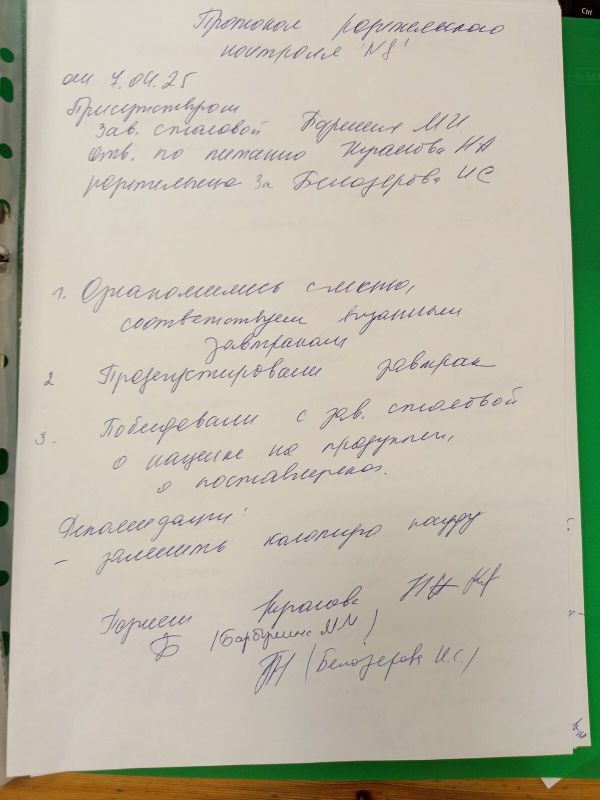 Протокол родительского
контроля №8
от 7.04.25
Присутствуют
Зав. столовой МИ
Отв. по питанию НА
родительница За Белозерова ИС
1. Ознакомились с меню,
соответствуем выданным
завтракам
2 Продегустировали завтрак
3. Побеседовали с зав. столовой
о наценке на продукты,
о поставщиках.
Рекомендации:
– заменить колотую посуду
(Барбушина М.М)
(Белозерова И.С.)